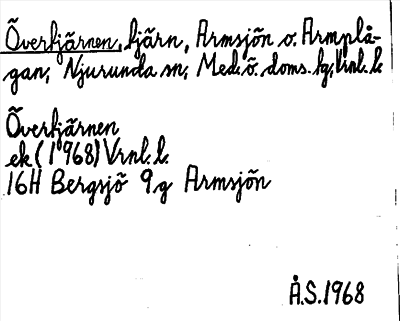 Övertjärnen, tjärn, Armsjön o. Armplå-
gan, Njurunda sn, Med. ö. doms. tg, Vrnl. l.
Övertjärnen
ek (1968) Vrnl. l.
16H Bergsjö 9 g Armsjön
Å.S. 1968